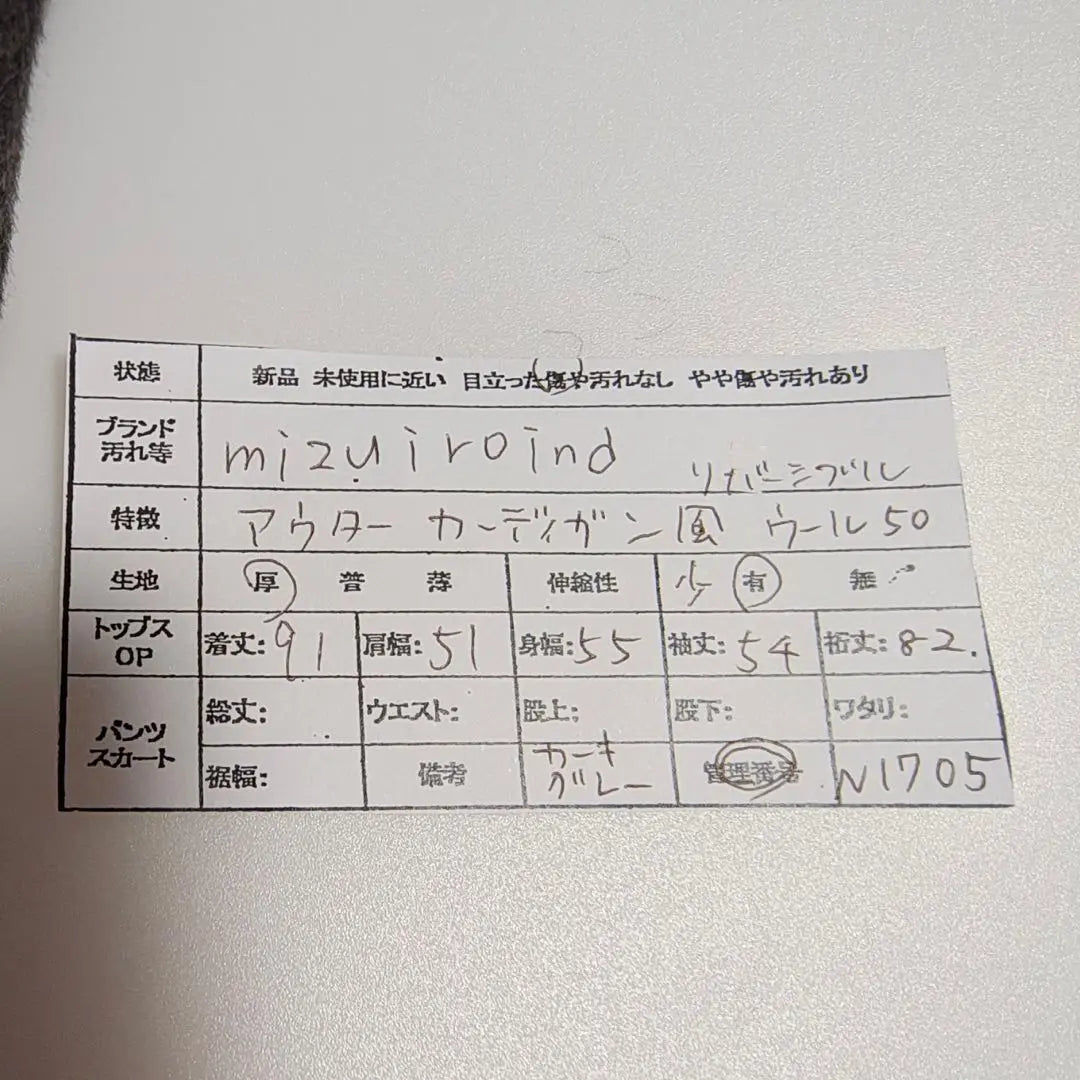 状態 新品 未使用に近い 目立った傷や汚れなし やや傷や汚れあり
ブランド
汚れ等
mizuiroind リバーシブル
特徴 アウター カーディガン風 ウール50
生地 厚 普 薄 伸縮性 少 有 無
トップス
OP
着丈:91 肩幅:51 身幅:55 袖丈:54 裄丈:82.
パンツ
スカート
総丈: ウエスト: 股上: 股下: ワタリ:
裾幅: 備考 カーキ
グレー
管理番号 N1705